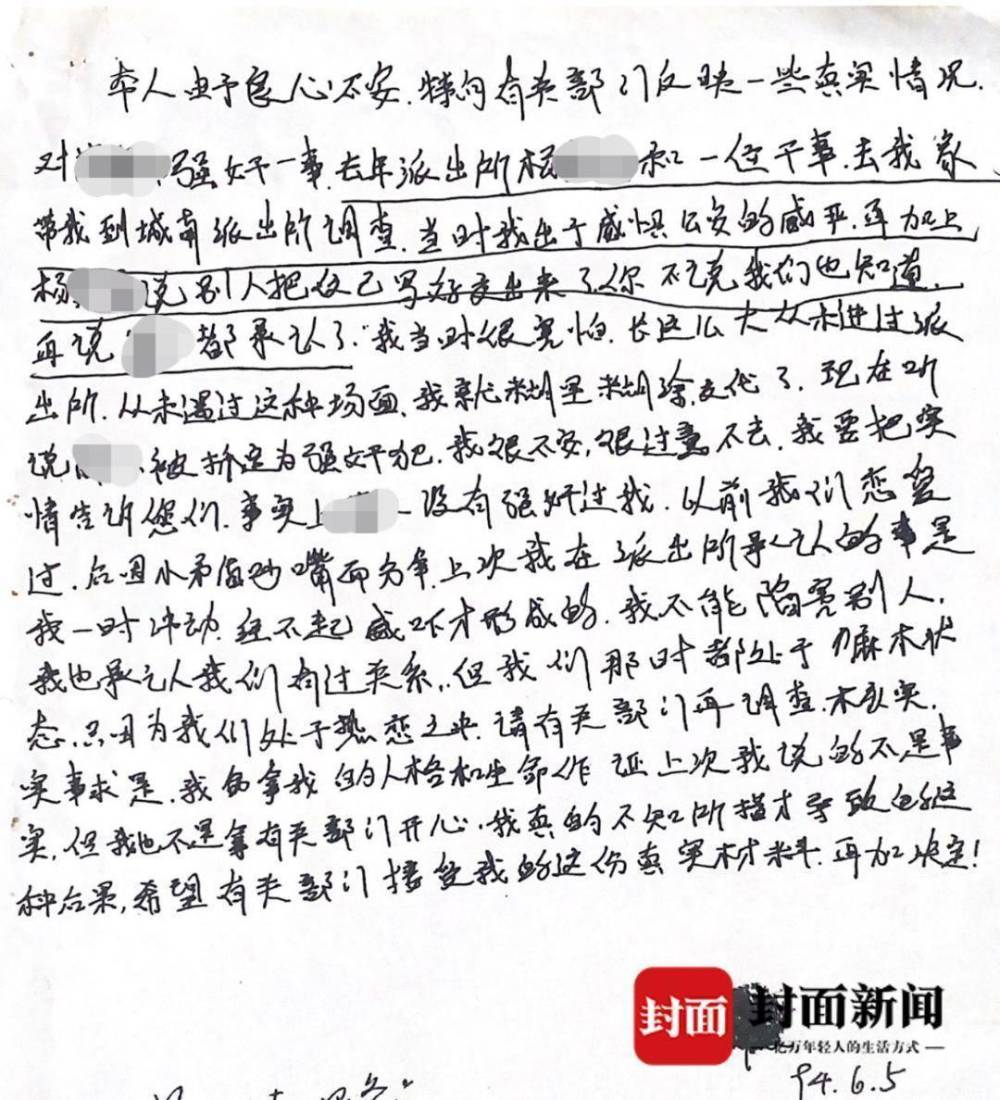 本人由于良心不安.特向有关部门反映一些真实情况.
对 强奸一事.去年派出所杨 和一位干事.去我家
带我到城南派出所调查.当时我出于惧公安的威严.再加上
杨 说别人把你已写好交出来了.你不说我们也知道.
再说 都承认了.我当时很害怕.长这么大从未进过派
出所.从未遇过这种场面.我就糊里糊涂交代了.现在听
说 被拆定为强奸犯.我很不安,很过意不去.我要把实
情告诉您们.事实上 没有强奸过我.以前我们恋爱
过.后因小矛盾吵嘴而分手.上次我在派出所承认的事是
我一时冲动.经不起威吓才形成的.我不能陷害别人.
我也承认我们有过关系,.但我们那时都处于麻木状
态.只因为我们处于热恋之中.请有关部门再调查.核实.
实事求是.我可拿我的人格和生命作证上次我说的不是事
实.但我也不是拿有关部门开心.我真的不知所措才导致的这
种后果,希望有关部门接受我的这份真实材料.再加决定!
封面 封面新闻
亿万年轻人的生活方式
94.6.5